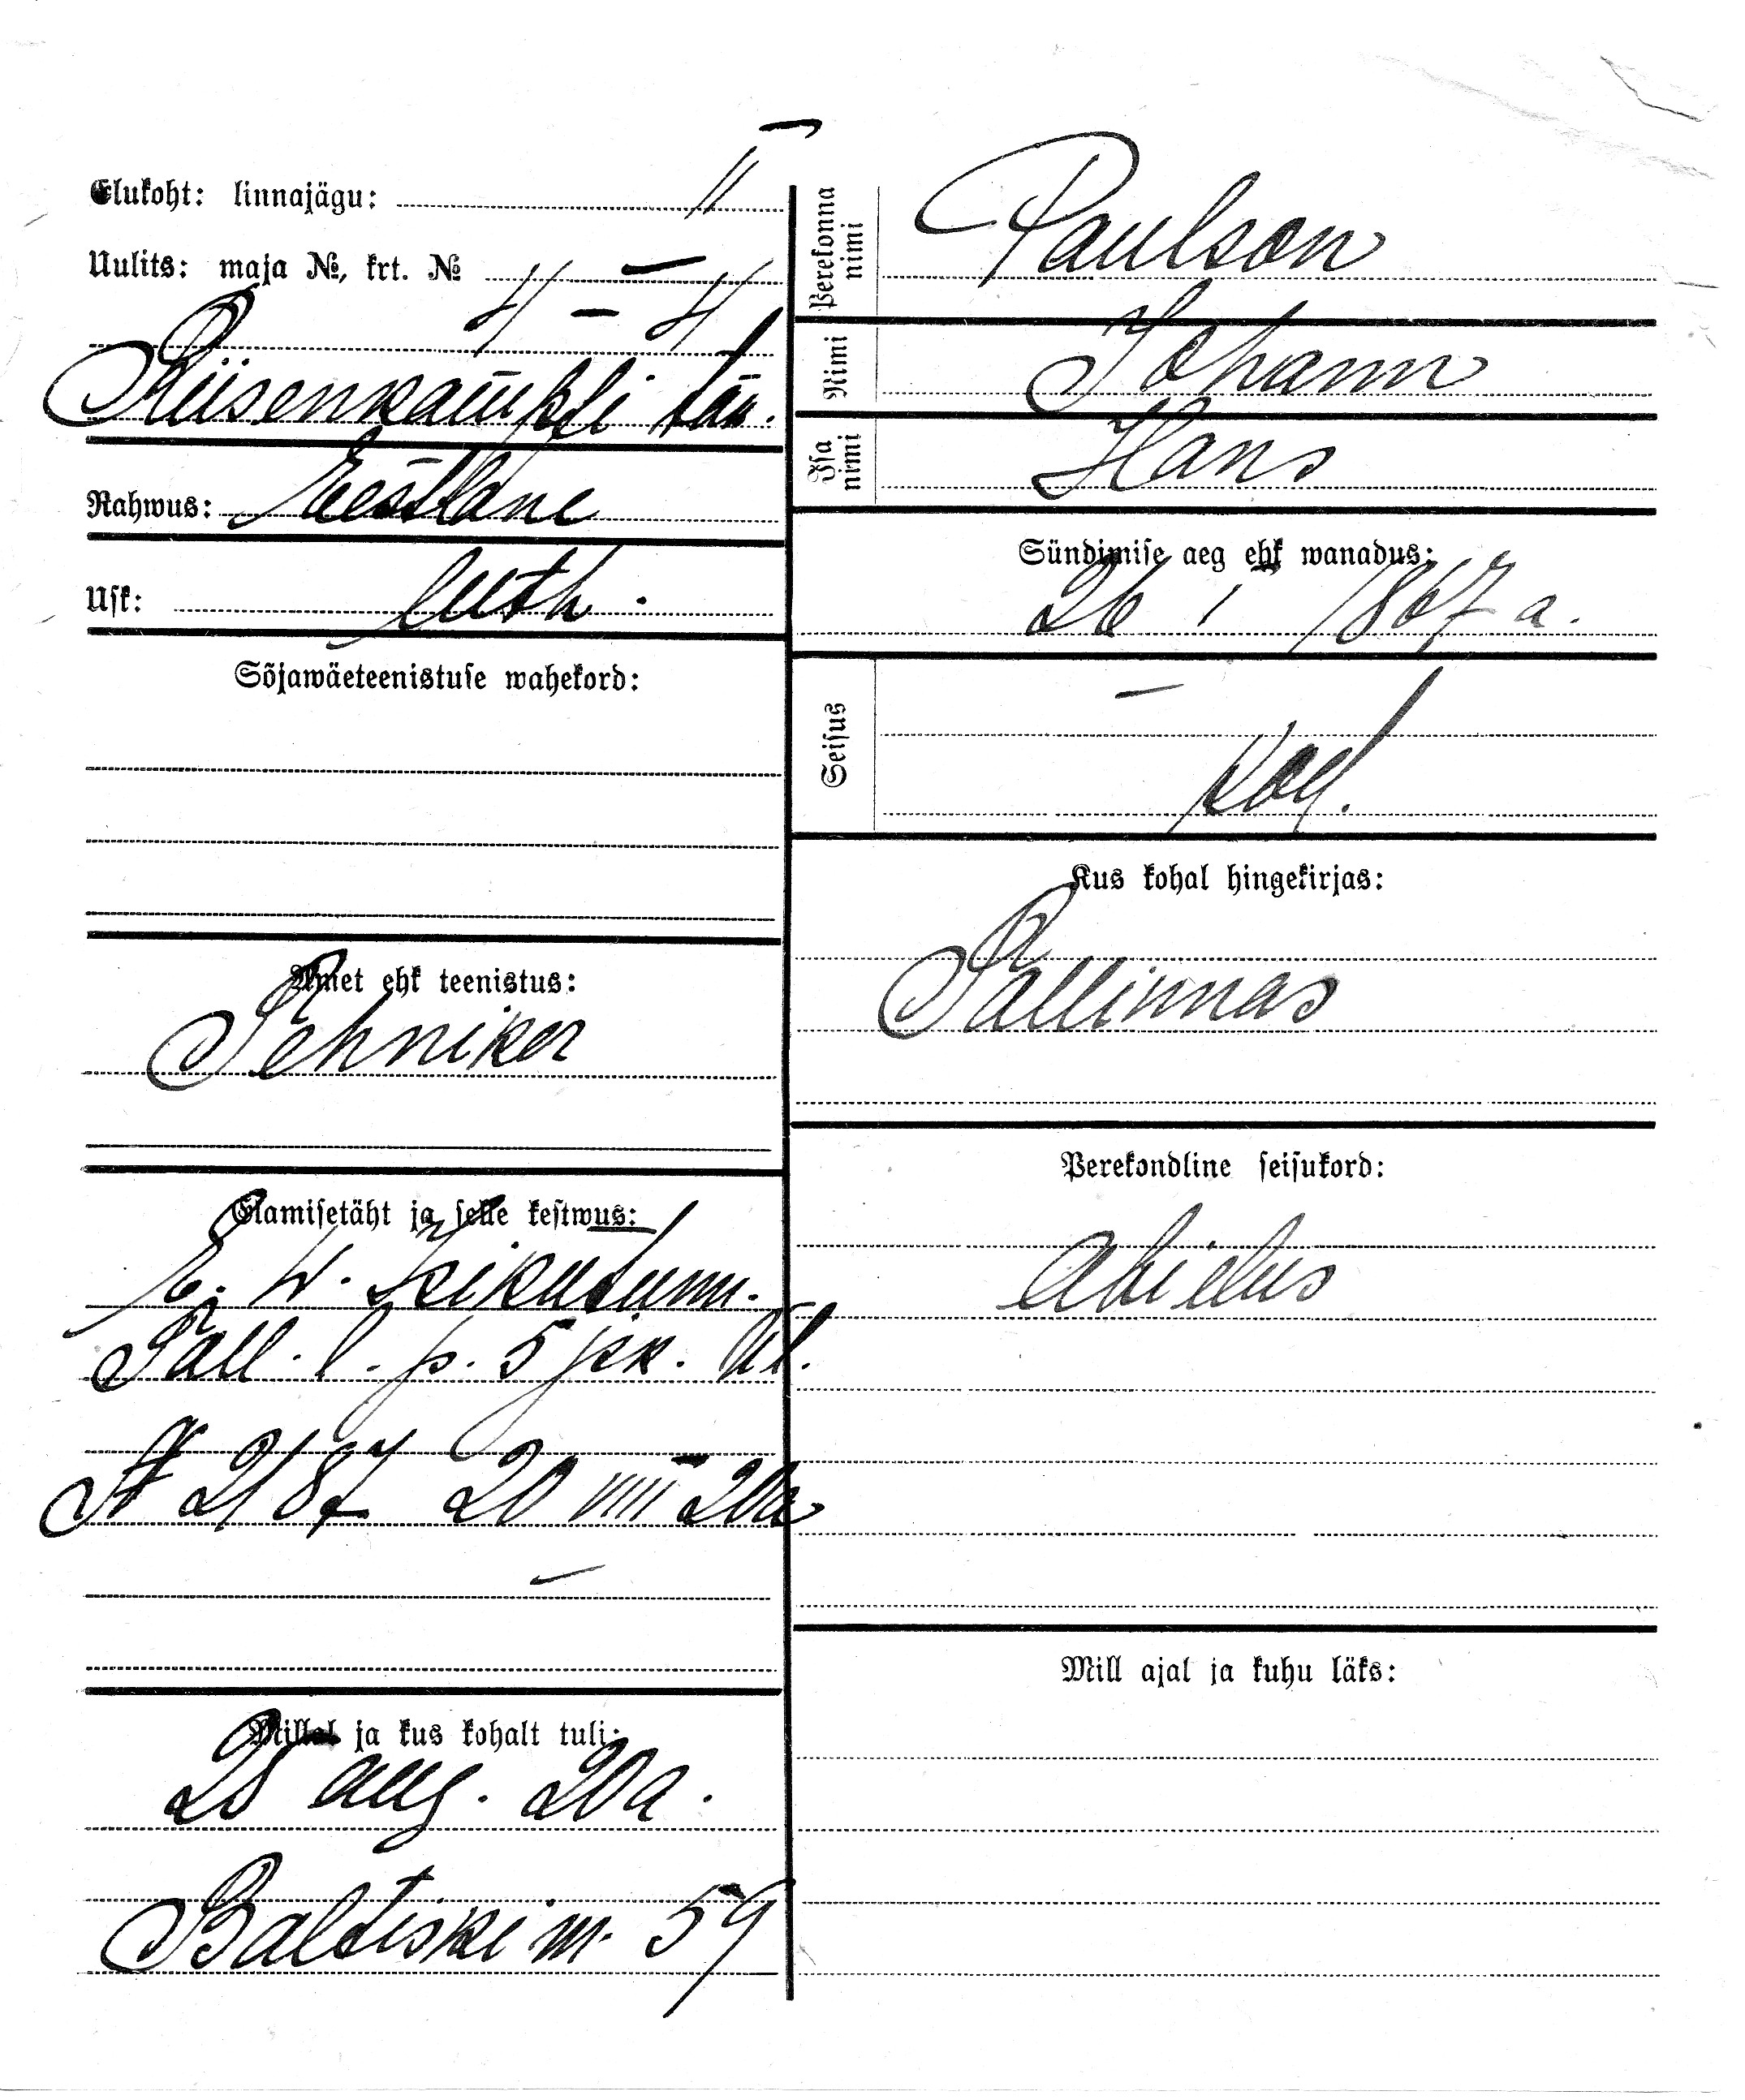 Elukoht: linnajägu: II
Uulits: maja №, krt. № 4 – 4
Riisenkampfi tän.
Rahwus: Eestlane
Usk: luth.
Sõjawäeteenistuse wahekord:
Amet ehk teenistus:
Tehniker
Elamisetäht ja selle kestwus:
E. W. Isikutunn.
Tall. l. p. 5 jsk. ül.
№ 2187 20 VIII 20a
Millal ja kus kohalt tuli:
28 aug. 20 a.
Baltiski m. 59
Perekonna nimi
Paulson
Nimi
Johann
Isa nimi
Hans
Sündimise aeg ehk wanadus:
26 I 1867 a.
Seisus
kod.
Kus kohal hingekirjas:
Tallinnas
Perekondline seisukord:
abielus
Mill ajal ja kuhu läks: